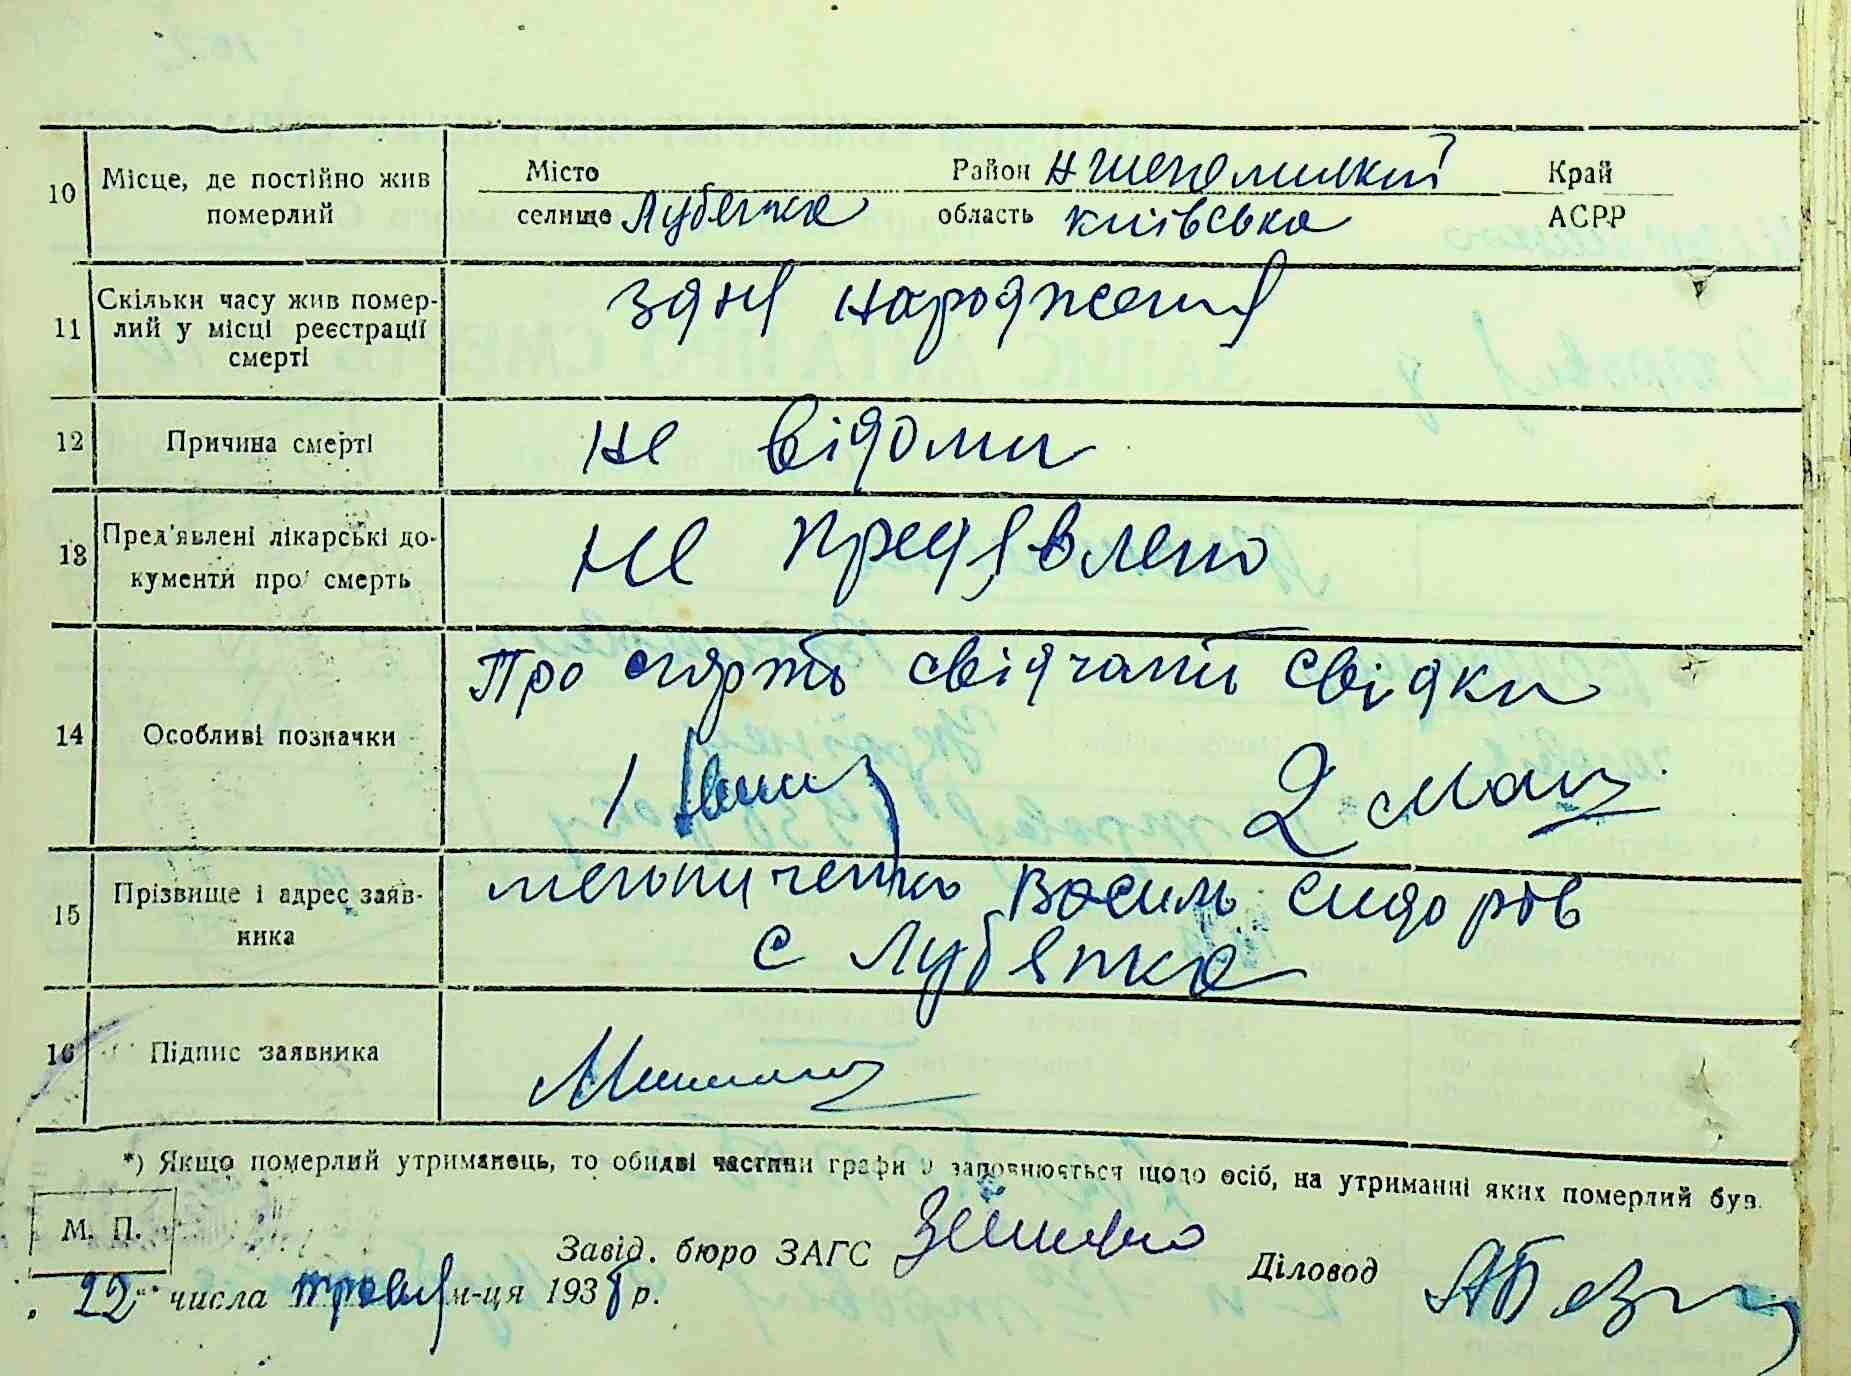 10 Місце, де постійно жив померлий Місто селище Лубянка Район область київська Край АСРР
11 Скільки часу жив померлий у місці реєстрації смерті
з дня народження
12 Причина смерті не відома
13 Пред'явлені лікарські документи про смерть не предявлено
14 Особливі позначки
Про смерть свідчать свідки
1
2
15 Прізвище і адрес заявника
Василь сидоров
с Лубянка
16 Підпис заявника
*) Якщо померлий утриманець, то обидві частини графи 9 заповнюється щодо осіб, на утриманні яких померлий був.
М. П.
Завід. бюро ЗАГС
Діловод
22 числа травня м-ця 1938 р.